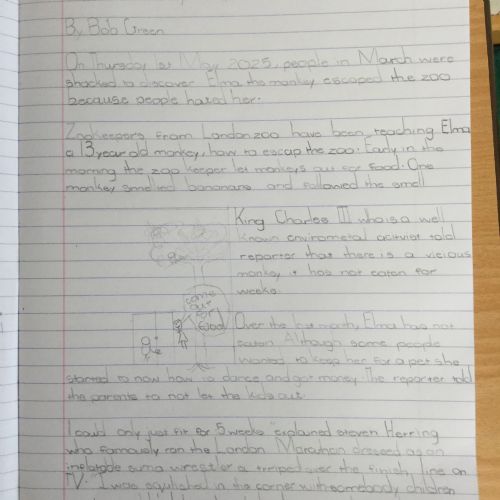 By Bob Green
On Thursday 1st May 2025, people in March were
shocked to discover Elma the monkey escaped the zoo
because people hated her.
Zookeepers from London zoo have been teaching Elma
a 13 year old monkey, how to escap the zoo. Early in the
morning the zoo keeper let monkeys out for food. One
monkey smelled bananans and followed the smell
King Charles III who is a well
known enviromental activist told
reporter that there is a vicious
monkey it has not eaten for
weeks.
come
out
for
food
Over the last month, Elma has not
eaten. Although some people
wanted to keep her for a pet she
started to now how to dance and got money. The reporter told
the parents to not let the kids out.
I could only just fit for 5 weeks" explained steven Herring
who famously ran the London Marathon dressed as an
inflatable suma wrestler a triped over the finish line on
TV. "I was in the corner with somebody children